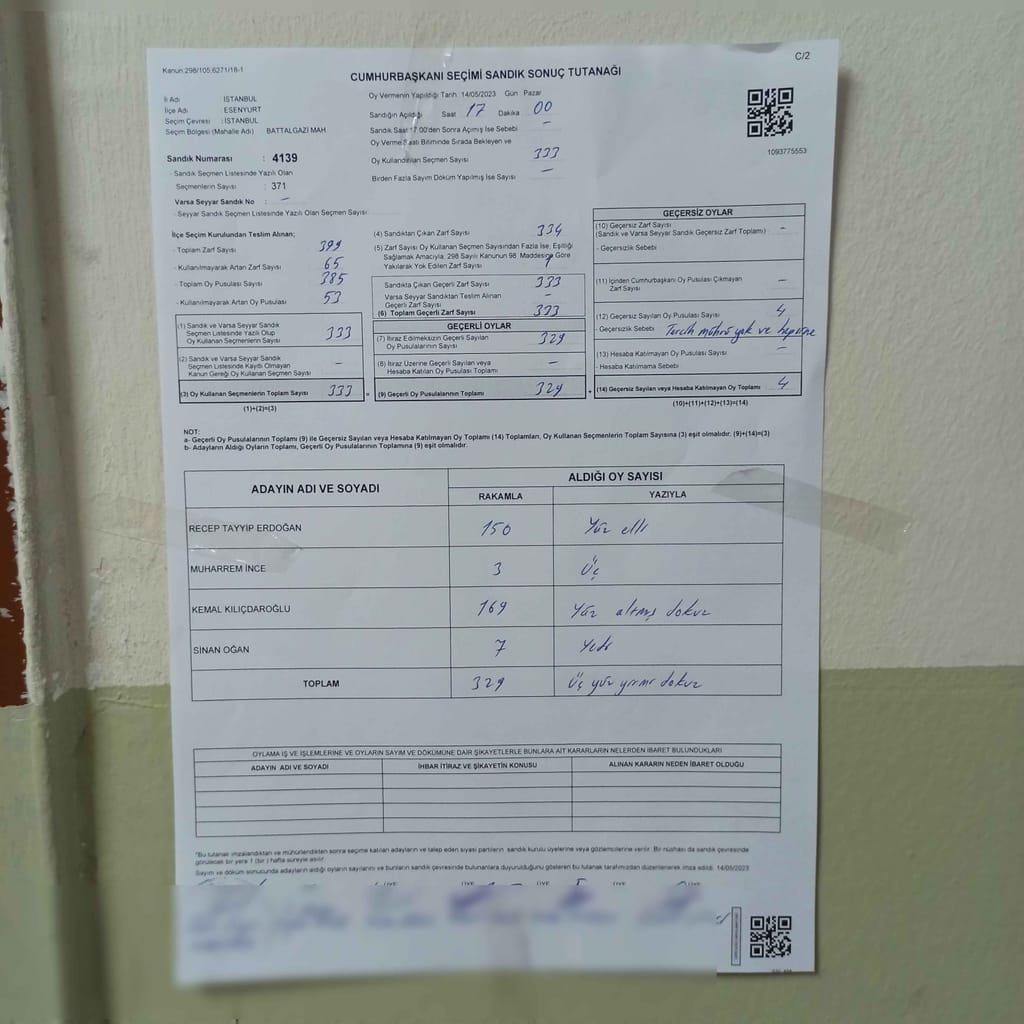 C/2
Kanun:298/105,6271/18-1
CUMHURBAŞKANI SEÇİMİ SANDIK SONUÇ TUTANAĞI
İl Adı : İSTANBUL
İlçe Adı : ESENYURT
Seçim Çevresi : İSTANBUL
Seçim Bölgesi (Mahalle Adı) BATTALGAZİ MAH.
Sandık Numarası : 4139
- Sandık Seçmen Listesinde Yazılı Olan
Seçmenlerin Sayısı : 371
Varsa Seyyar Sandık No : –
- Seyyar Sandık Seçmen Listesinde Yazılı Olan Seçmen Sayısı:
Oy Vermenin Yapıldığı Tarih: 14/05/2023 Gün : Pazar
Sandığın Açıldığı Saat 17 Dakika 00
Sandık Saat 17:00'den Sonra Açılmış İse Sebebi –
Oy Verme Saati Bitiminde Sırada Bekleyen ve
Oy Kullandırılan Seçmen Sayısı 333
Birden Fazla Sayım Döküm Yapılmış İse Sayısı –
1093775553
İlçe Seçim Kurulundan Teslim Alınan;
- Toplam Zarf Sayısı 399
- Kullanılmayarak Artan Zarf Sayısı 65
- Toplam Oy Pusulası Sayısı 385
- Kullanılmayarak Artan Oy Pusulası 53
(1) Sandık ve Varsa Seyyar Sandık
Seçmen Listesinde Yazılı Olup
Oy Kullanan Seçmenlerin Sayısı 333
(2) Sandık ve Varsa Seyyar Sandık
Seçmen Listesinde Kayıtlı Olmayan
Kanun Gereği Oy Kullanan Seçmen Sayısı –
(3) Oy Kullanan Seçmenlerin Toplam Sayısı 333 =
(1)+(2)=(3)
(4) Sandıktan Çıkan Zarf Sayısı 334
(5) Zarf Sayısı Oy Kullanan Seçmen Sayısından Fazla İse, Eşitliği
Sağlamak Amacıyla, 298 Sayılı Kanunun 98. Maddesine Göre
Yakılarak Yok Edilen Zarf Sayısı 1
Sandıkta Çıkan Geçerli Zarf Sayısı 333
Varsa Seyyar Sandıktan Teslim Alınan
Geçerli Zarf Sayısı –
(6) Toplam Geçerli Zarf Sayısı 333
GEÇERLİ OYLAR
(7) İtiraz Edilmeksizin Geçerli Sayılan
Oy Pusulalarının Sayısı 329
(8) İtiraz Üzerine Geçerli Sayılan veya
Hesaba Katılan Oy Pusulası Toplamı –
(9) Geçerli Oy Pusulalarının Toplamı 329 +
GEÇERSİZ OYLAR
(10) Geçersiz Zarf Sayısı
(Sandık ve Varsa Seyyar Sandık Geçersiz Zarf Toplamı) –
- Geçersizlik Sebebi
(11) İçinden Cumhurbaşkanı Oy Pusulası Çıkmayan
Zarf Sayısı –
(12) Geçersiz Sayılan Oy Pusulası Sayısı 4
- Geçersizlik Sebebi Tercih mührü yok ve hepsine
(13) Hesaba Katılmayan Oy Pusulası Sayısı –
- Hesaba Katılmama Sebebi
(14) Geçersiz Sayılan veya Hesaba Katılmayan Oy Toplamı 4
(10)+(11)+(12)+(13)=(14)
NOT:
a- Geçerli Oy Pusulalarının Toplamı (9) ile Geçersiz Sayılan veya Hesaba Katılmayan Oy Toplamı (14) Toplamları, Oy Kullanan Seçmenlerin Toplam Sayısına (3) eşit olmalıdır. (9)+(14)=(3)
b- Adayların Aldığı Oyların Toplamı, Geçerli Oy Pusulalarının Toplamına (9) eşit olmalıdır.
ADAYIN ADI VE SOYADI ALDIĞI OY SAYISI
RAKAMLA YAZIYLA
RECEP TAYYİP ERDOĞAN 150 Yüz elli
MUHARREM İNCE 3 Üç
KEMAL KILIÇDAROĞLU 169 Yüz altmış dokuz
SİNAN OĞAN 7 Yedi
TOPLAM 329 Üç yüz yirmi dokuz
OYLAMA İŞ VE İŞLEMLERİNE VE OYLARIN SAYIM VE DÖKÜMÜNE DAİR ŞİKAYETLERLE BUNLARA AİT KARARLARIN NELERDEN İBARET BULUNDUKLARI
ADAYIN ADI VE SOYADI İHBAR İTİRAZ VE ŞİKAYETİN KONUSU ALINAN KARARIN NEDEN İBARET OLDUĞU
*Bu tutanak imzalandıktan ve mühürlendikten sonra seçime katılan adayların ve talep eden siyasi partilerin sandık kurulu üyelerine veya gözlemcilerine verilir. Bir nüshası da sandık çevresinde
görülecek bir yere 1 (bir) hafta süreyle asılır.
Sayım ve döküm sonucunda adayların aldığı oyların sayılarını ve bunların sandık çevresinde bulunanlara duyurulduğunu gösteren bu tutanak tarafımızdan düzenlenerek imza edildi. 14/05/2023
ÜYE ÜYE ÜYE ÜYE ÜYE